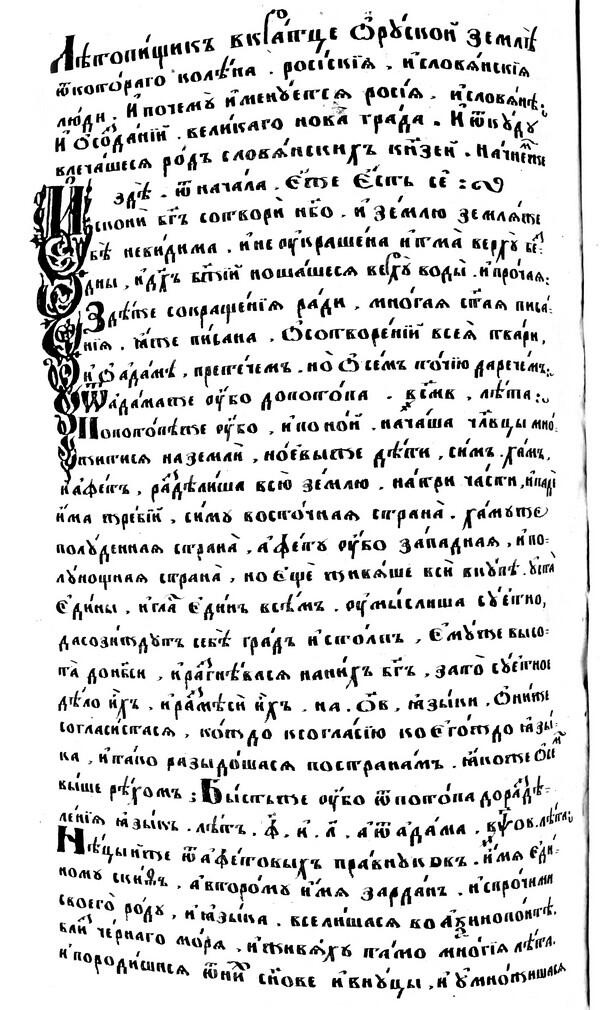 Лѣтописчикъ вкратце Ѡруской землѣ
ѿкоторагѡ колѣна. росіскія, исловянскія
люди. И почемꙋ именꙋется росія. исловянѣ.
И ѡсозданій. великаго нова града. И ѿкꙋдꙋ
влечашеся родъ словянскихъ кнѧзей. Начнемже
здѣ. ѿ начала. Єже єсть сє:
Искони бг҃ъ сотвори нб҃о. и землю земляже
бѣ невидима. и не оукрашена итма верхꙋ без
дны, и дх҃ъ бж҃ій ношашеся верхꙋ воды. и прочая:
Здѣже сокращенія ради, многая ст҃ая писа
нія. ꙗже писана, Ѡсотвореніи всея твари,
и ѡадамѣ, претечемъ. но ѡ семъ точію даречемъ:
Ѿадамаже оубо допотопа. , лѣта:
Попотопѣже оубо, и по ной. начаша чл҃вцы мно
житися на земли, ноевыже дѣти, симъ. хамъ.
и афетъ, раздѣлиша всю землю. на три части, и паде
има жребій, симꙋ восточная страна. хамꙋже
полꙋденная страна, афетꙋ оубо западная, и по
лꙋнощная страна, но еще живяше вси вкꙋпѣ. ꙋста
єдины, и глас єдинъ всѣмъ. оумыслиша сꙋетно,
да созиждꙋтъ себѣ градъ и столпъ, ємꙋже высо
та до нб҃си, и разгнѣвася на нихъ бг҃ъ, за то сꙋетное
дѣло ихъ, и размѣси ихъ. на. ѻ҃в, ꙗзыки. Ѻниже
согласистася, кождо ксогласію коегождо ꙗзы
ка, и тако разыдошася постранам. ꙗкоже ѡсем
выше рѣхомъ; Бысть же оубо ѿпотопа до раздѣ
ленія ꙗзыкъ. лѣтъ. ф҃. и. л҃. а ѿадама. лѣта,
Нѣцыиже ѿ афетовыхъ правнꙋковъ. имя єди
номꙋ скиѳъ, а второмꙋ имя зарданъ. и спрочими
своего родꙋ, и ꙗзыка. вселишася во аѯинопонтѣ.
близ чернаго моря, и живяхꙋ тамо многія лѣта.
и породишися ѿ них сн҃ове и внꙋцы, и оумножишася